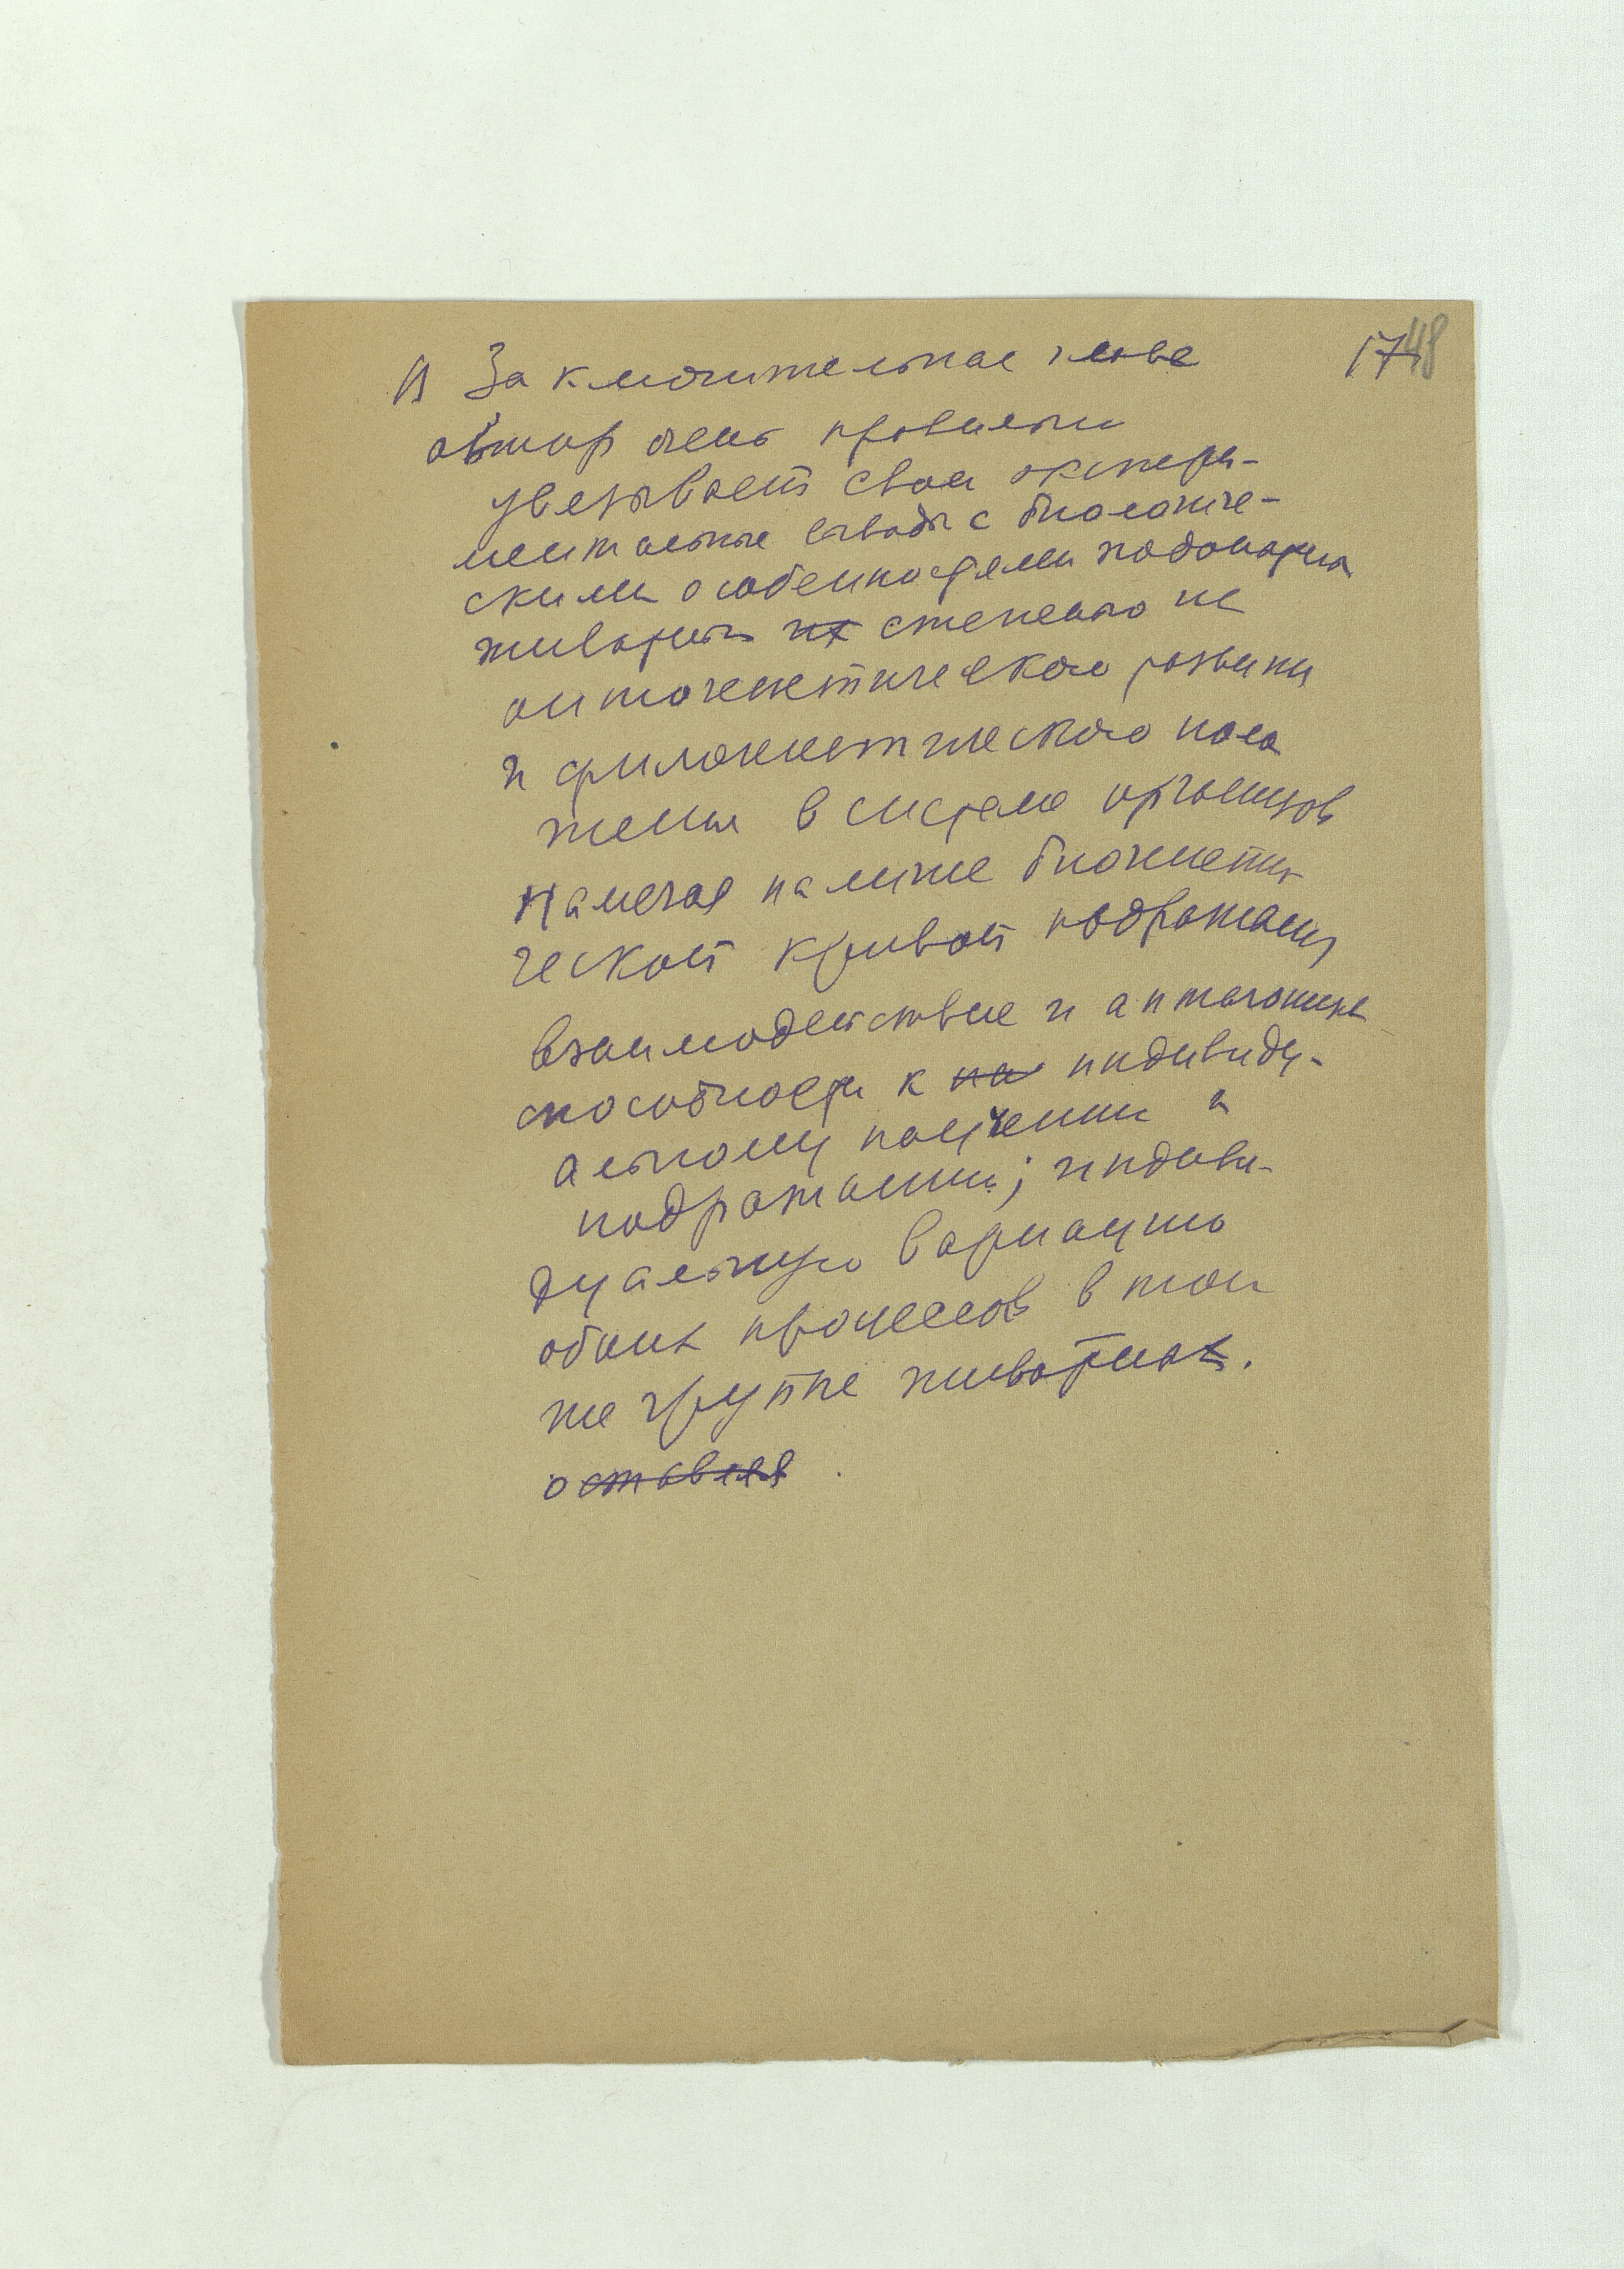 В Заключительной главе 17 48
автор очень правильно
увязывает свои экспери-
ментальные выводы с биологиче-
скими особенностями подопытных
животных их степенью
онтогенетического развития
и филогенетического поло
жения в системе организмов
Намечая наличие биогенети
ческой кривой подражания
взаимодействие и антагонизм
способности к на индивиду-
альному научению и
подражанию; индиви-
дуальную вариацию
обоих процессов в той
же группе животных.
оставляя